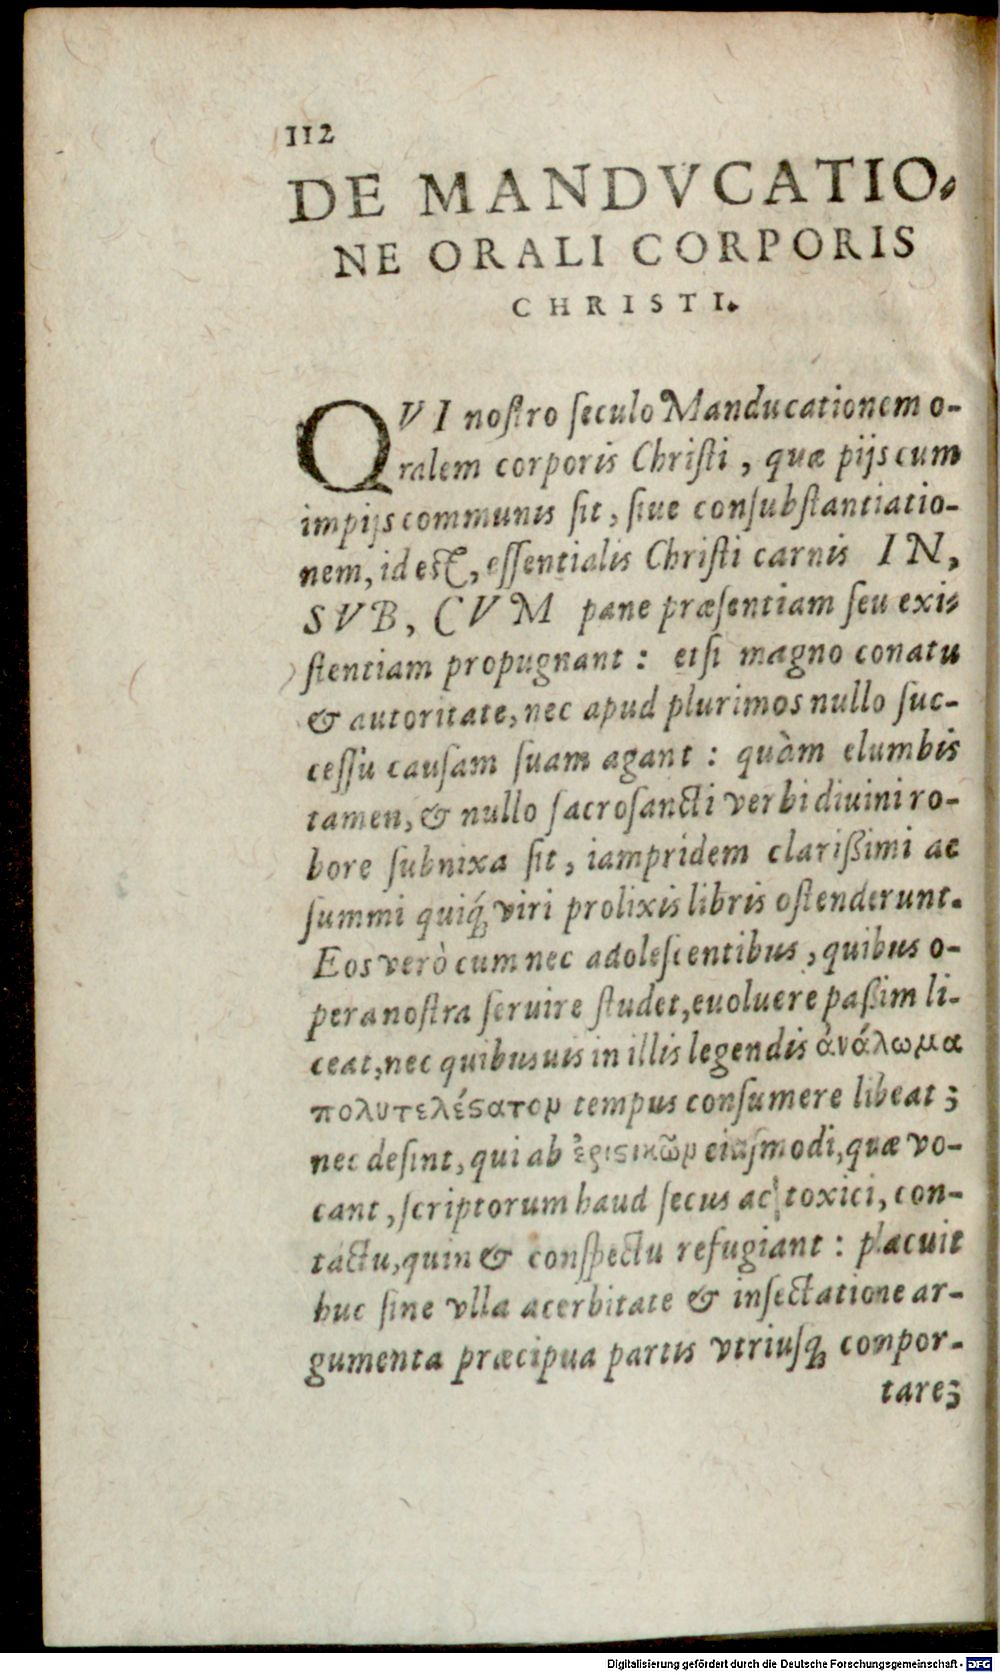 112
DE MANDVCATIO-
NE ORALI CORPORIS
CHRISTI.
QVI noſtro ſeculo Manducationem o-
ralem corporis Chriſti, quæ pijs cum
impijs communis ſit, ſiue conſubſtantiatio-
nem, id est, eſſentialis Chriſti carnis IN,
SVB, CVM pane præſentiam ſeu exi-
ſtentiam propugnant: etſi magno conatu
& autoritate, nec apud plurimos nullo ſuc-
ceſſu cauſam ſuam agant: quàm elumbis
tamen, & nullo ſacroſancti verbi diuini ro-
bore ſubnixa ſit, iampridem clarißimi ac
ſummi quiq́; viri prolixis libris oſtenderunt.
Eos verò cum nec adoleſcentibus, quibus o-
pera noſtra ſeruire ſtudet, euoluere paßim li-
ceat, nec quibusuis in illis legendis ἀνάλωμα
πολυτελέϛατον tempus conſumere libeat;
nec deſint, qui ab ἐριϛικῶν eiuſmodi, quæ vo-
cant, ſcriptorum haud ſecus ac toxici, con-
tactu, quin & conſpectu refugiant: placuit
huc ſine vlla acerbitate & inſectatione ar-
gumenta præcipua partis vtriuſq; compor-
tare;
Digitalisierung gefördert durch die Deutsche Forschungsgemeinschaft - DFG